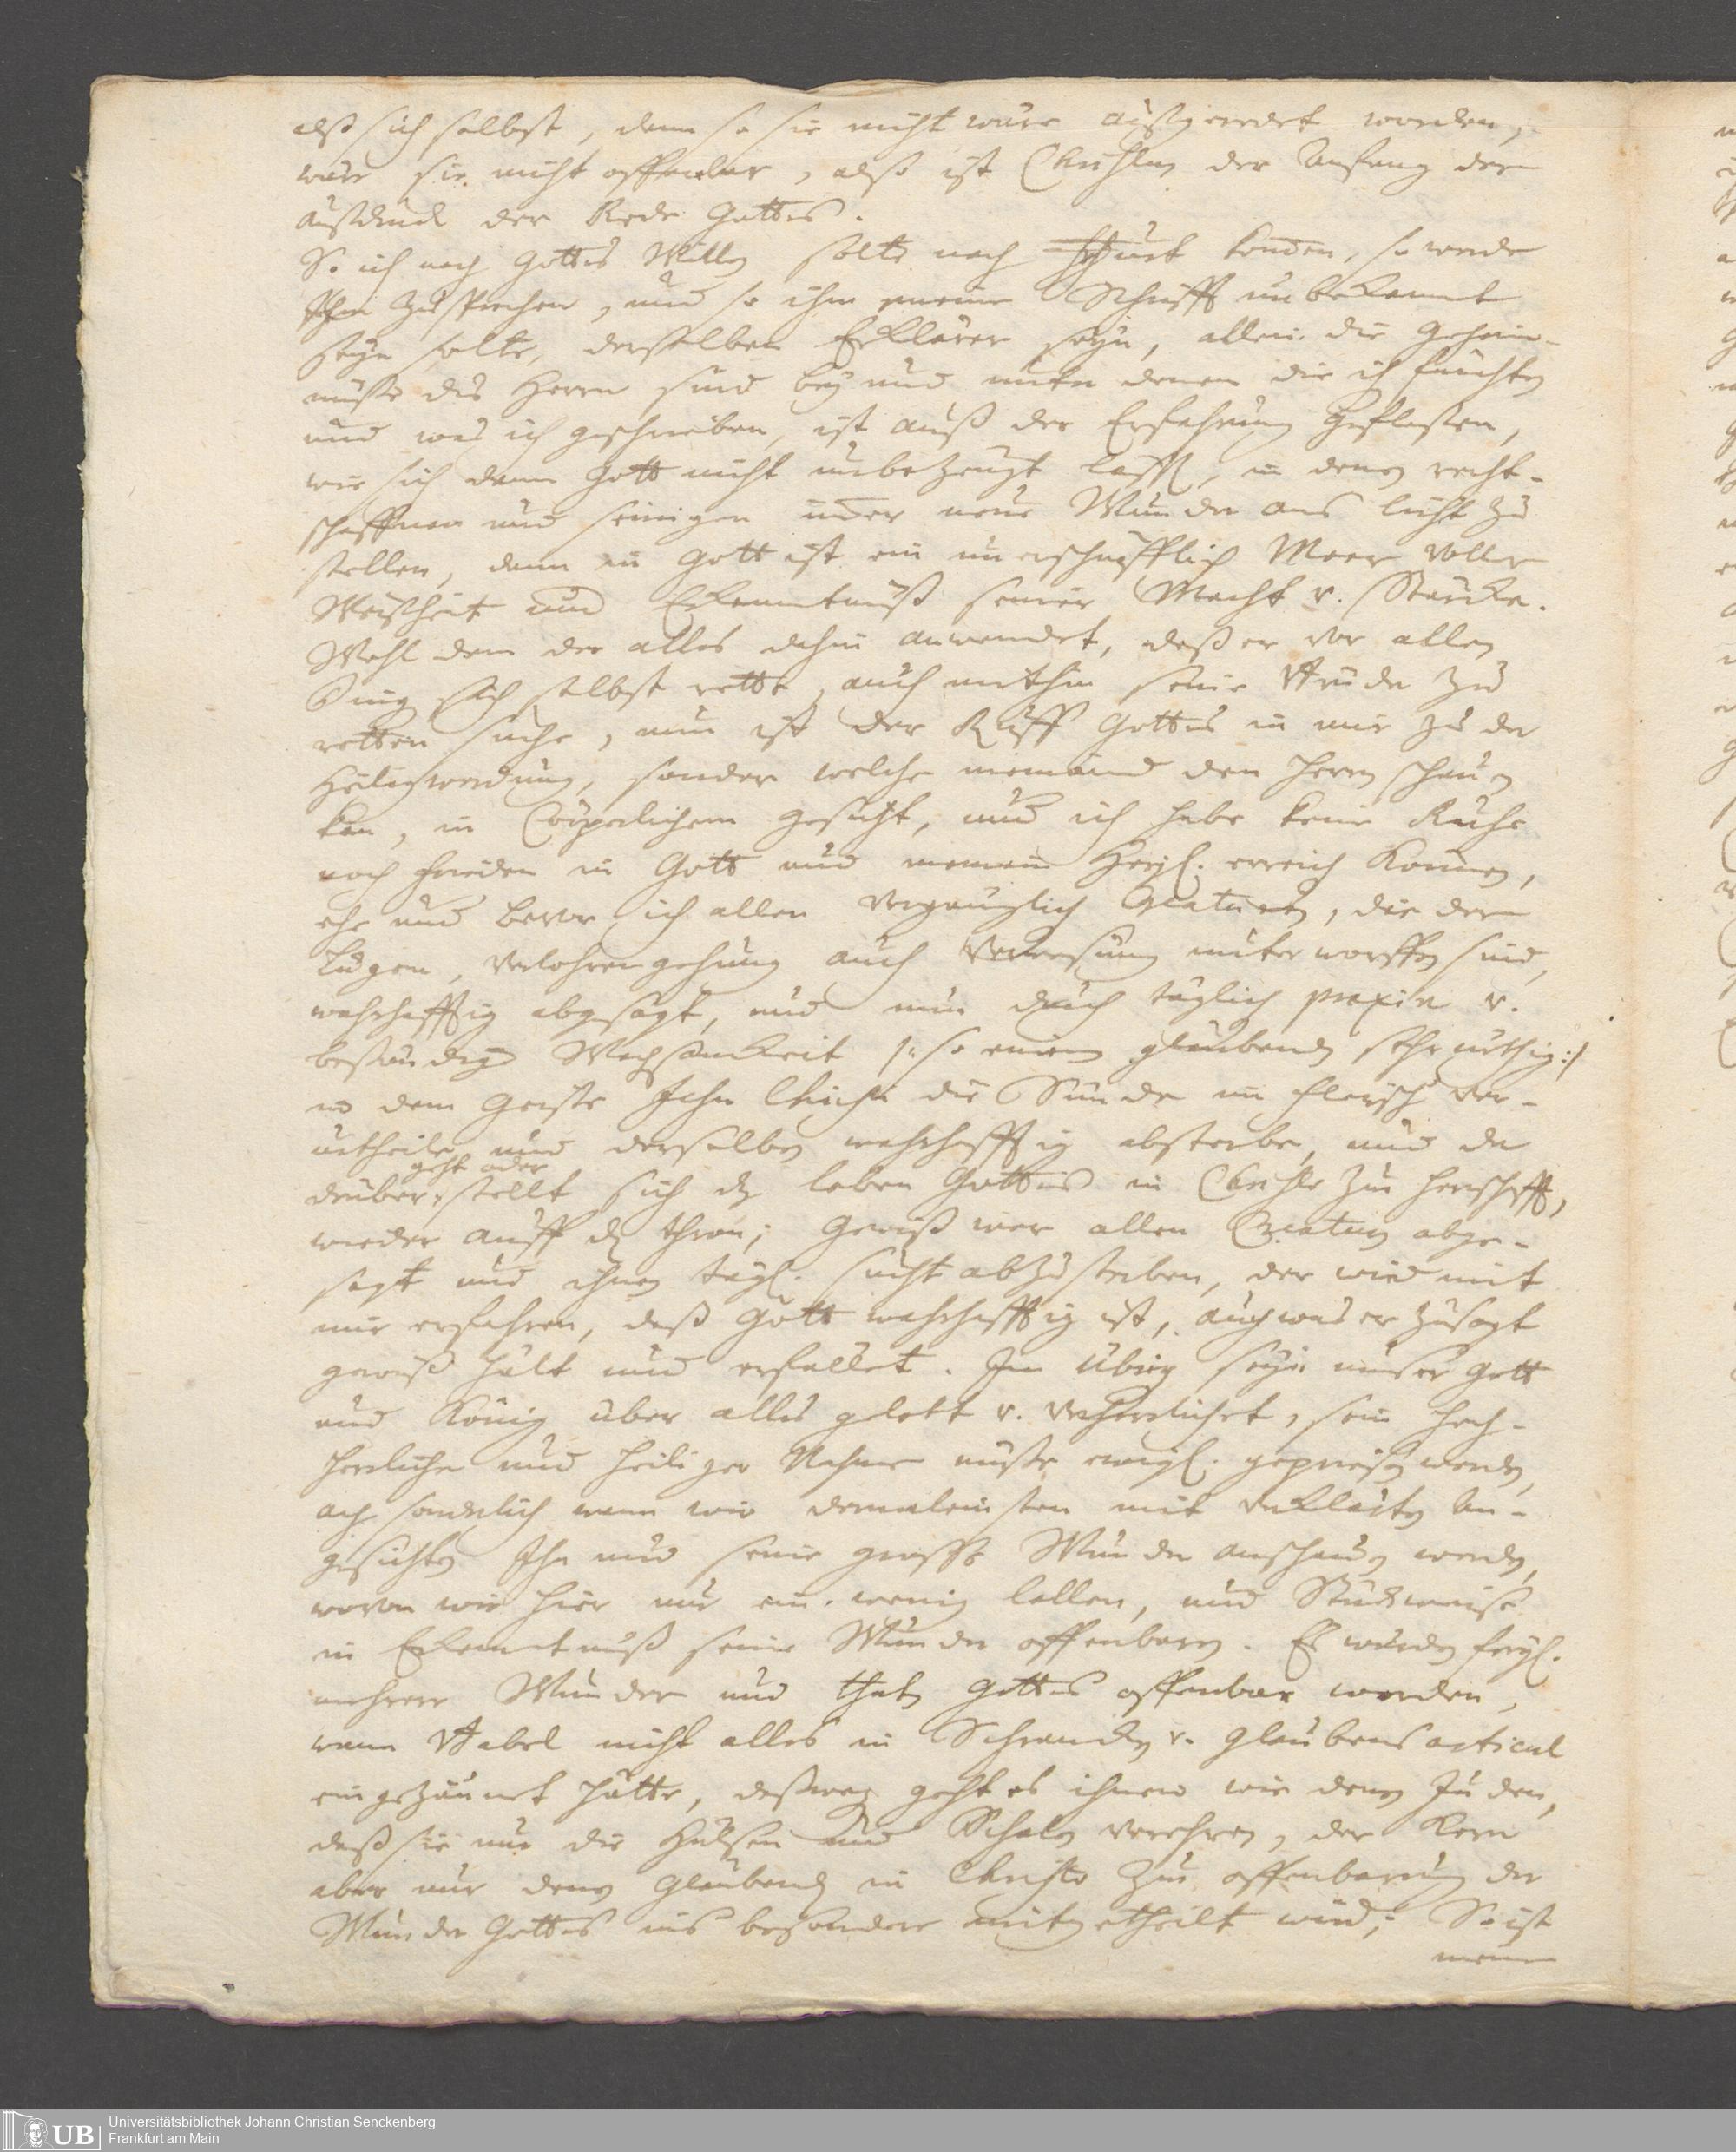 alß sich selbst, dann so sie nicht wäre außgeredet worden,
wäre sie nicht offenbar, alß ist Christus der Anfang der
außdruck der Rede Gottes.
So ich nach Gottes Willen solte nach kom̃en, so werde
Ihm zusprechen, und so ihm meine Schrifft unbekannt
seyn solte, derselben Erklärer seyn, allein die Geheim-
nüße des Herrn sind bey und unter denen die ihn fürchten
und was ich geschrieben, ist auß der Erfahrung geflossen,
wie sich dann Gott nicht unbezeugt lässt, in denen recht-
schaffnen und seinigen im̃er neue Wunder ans licht zu
stellen, dann in Gott ist ein unerschöpfflich Meer voller
Weißheit und Erkenntnüß seiner Macht v. Stärcke.
Wohl dem der alles dahin anwendet, daß er vor allen
Ding sich selbst rette, auch mithin seine Brüder zu
retten suche, nun ist der Ruff Gottes in mir zu der
Heiligwerdung, sonder welche niemand den Herrn schauen
kan, in Cörperlichem gesicht, und ich habe keine Ruhe
noch frieden in Gott und meinem Hertzen erreich können,
ehe und bevor ich allen vergänglich Creaturen, die der
Lügen, verlohrengehung auch Verwesung unterworffen sind,
wahrhafftig abgesagt, und nun durch täglich praxin v.
beständige Wachsamkeit /: so einem glaubenden sehr nöthig :/
in dem Geiste Jesu Christi die Sünde im fleisch ver-
urtheile und derselben wahrhafftig absterbe, und da
geht oder
drüber, stellt sich dz leben Gottes in Christo zur herrschafft,
wieder auff dz thron; Gewiß wer allen Creaturen abge-
sagt und ihnen tägl. sucht abzusterben, der wird mit
mir erfahren, daß Gott wahrhafftig ist, auch was er zusagt
gewiß hält und erfüllet. Im übrig seye unser Gott
und König über alles gelobt v. verherrlichet, sein hoch-
herrlicher und heiliger Nahme müße ewigl. gepriesen werden,
ach sonderlich wann wir dermaleinsten mit verklärten An-
gesichten Ihn und seine grosse Wunder anschauen werden,
wovon wir hier nur ein wenig lallen, und Stückweise
in Erkenntnuß seine Wunder offenbaren. Es würden
mehrere Wunder und thaten Gottes offenbar werden,
wann Babel nicht alles in Schrancken v. glaubens articul
eingezäunet hätte, deßweg geht es ihnen wie denen Juden,
daß sie nur die Hülsen und Schalen verehren, der Kern
aber nur denen glaubenden in Christo zur offenbarung der
Wunder Gottes ins besondere mitgetheilt wird; So ist
meine
Universitätsbibliothek Johann Christian Senckenberg
Frankfurt am Main
UB